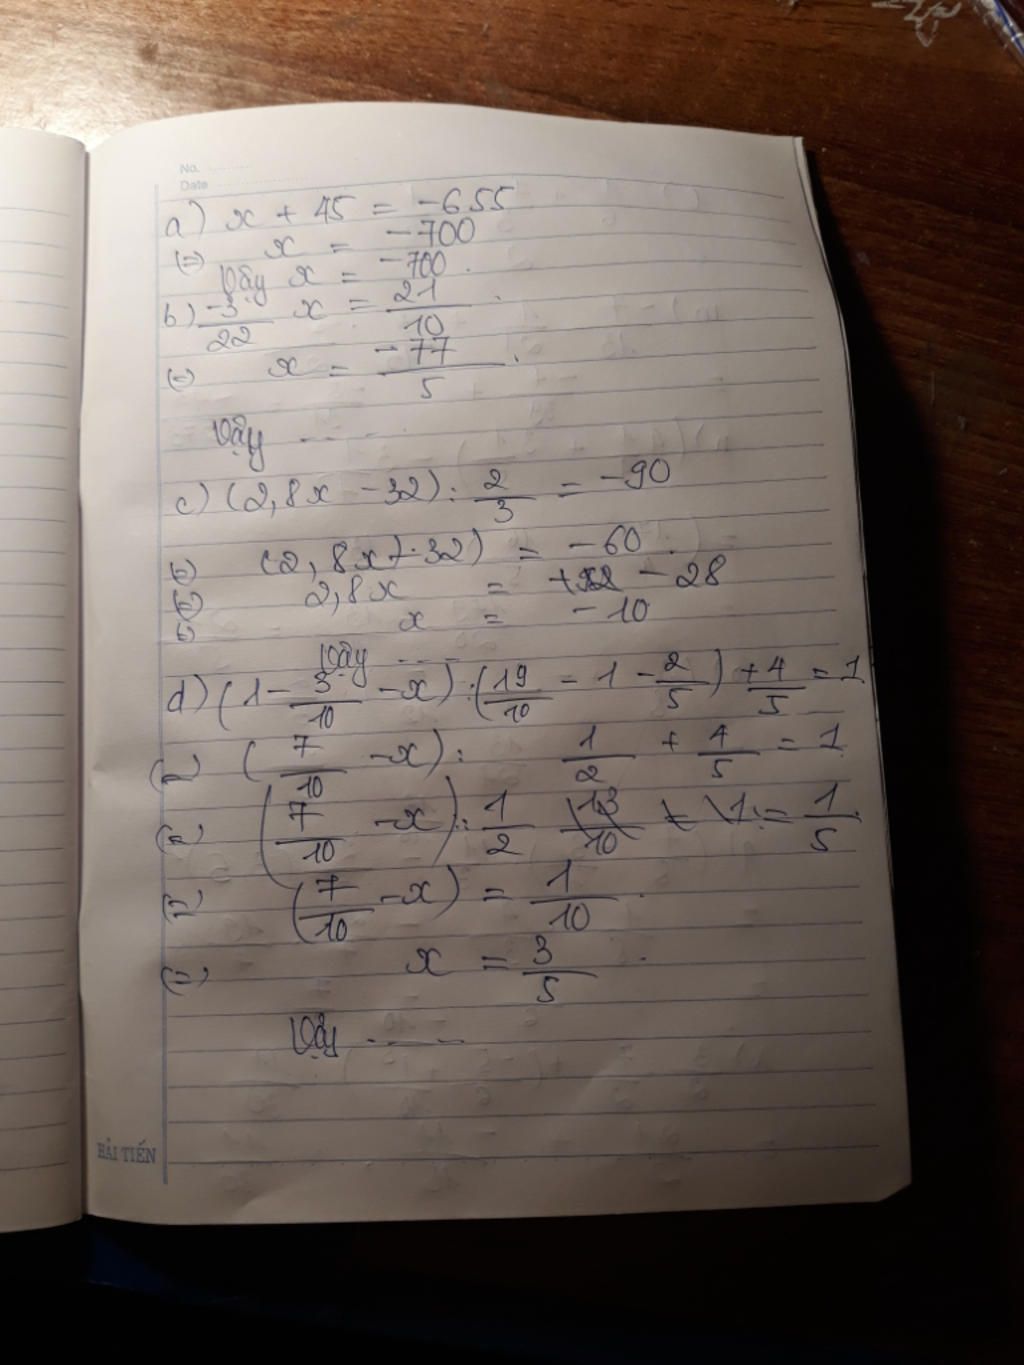 No.
Date
a) x + 45 = -655
(=) x = -700
Vậy x = -700.
b) -3/22 x = 21/10.
(=) x = -77/5.
Vậy ...
c) (2,8x - 32) : 2/3 = -90
(=) (2,8x - 32) = -60.
(=) 2,8x = -28
(=) x = -10
Vậy ...
d) (1 - 3/10 - x) : (19/10 - 1 - 2/5) + 4/5 = 1
(=) (7/10 - x) : 1/2 + 4/5 = 1
(=) (7/10 - x) : 1/2 = 1/5.
(=) (7/10 - x) = 1/10.
(=) x = 3/5.
Vậy ...
HẢI TIẾN